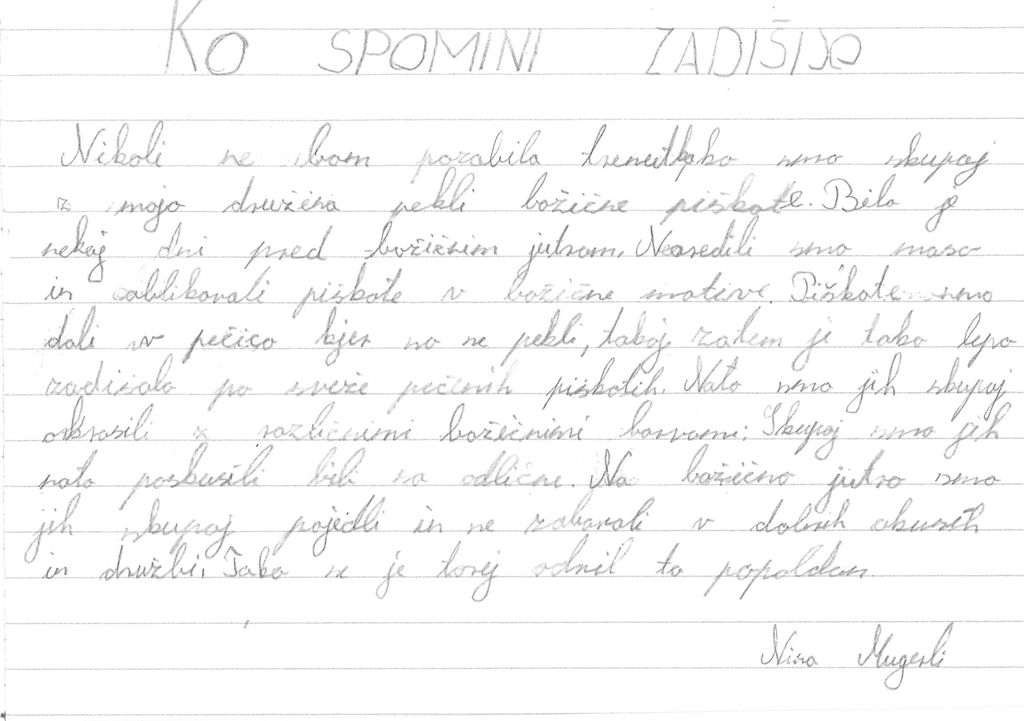 KO SPOMINI ZADIŠIJO
Nikoli ne bom pozabila trenutka ko smo skupaj
z mojo družino pekli božične piškote. Bilo je
nekaj dni pred božičnim jutrom. Naredili smo maso
in oblikovali piškote v božične motive. Piškote smo
dali v pečico kjer so se pekli, takoj zatem je tako lepo
zadišalo po sveže pečenih piškotih. Nato smo jih skupaj
okrasili z različnimi božičnimi barvami. Skupaj smo jih
nato poskusili bili so odlične. Na božično jutro smo
jih skupaj pojedli in se zabavali v dobrih okusih
in družbi. Tako se je torej odvil ta popoldan.
Nina Mugerli